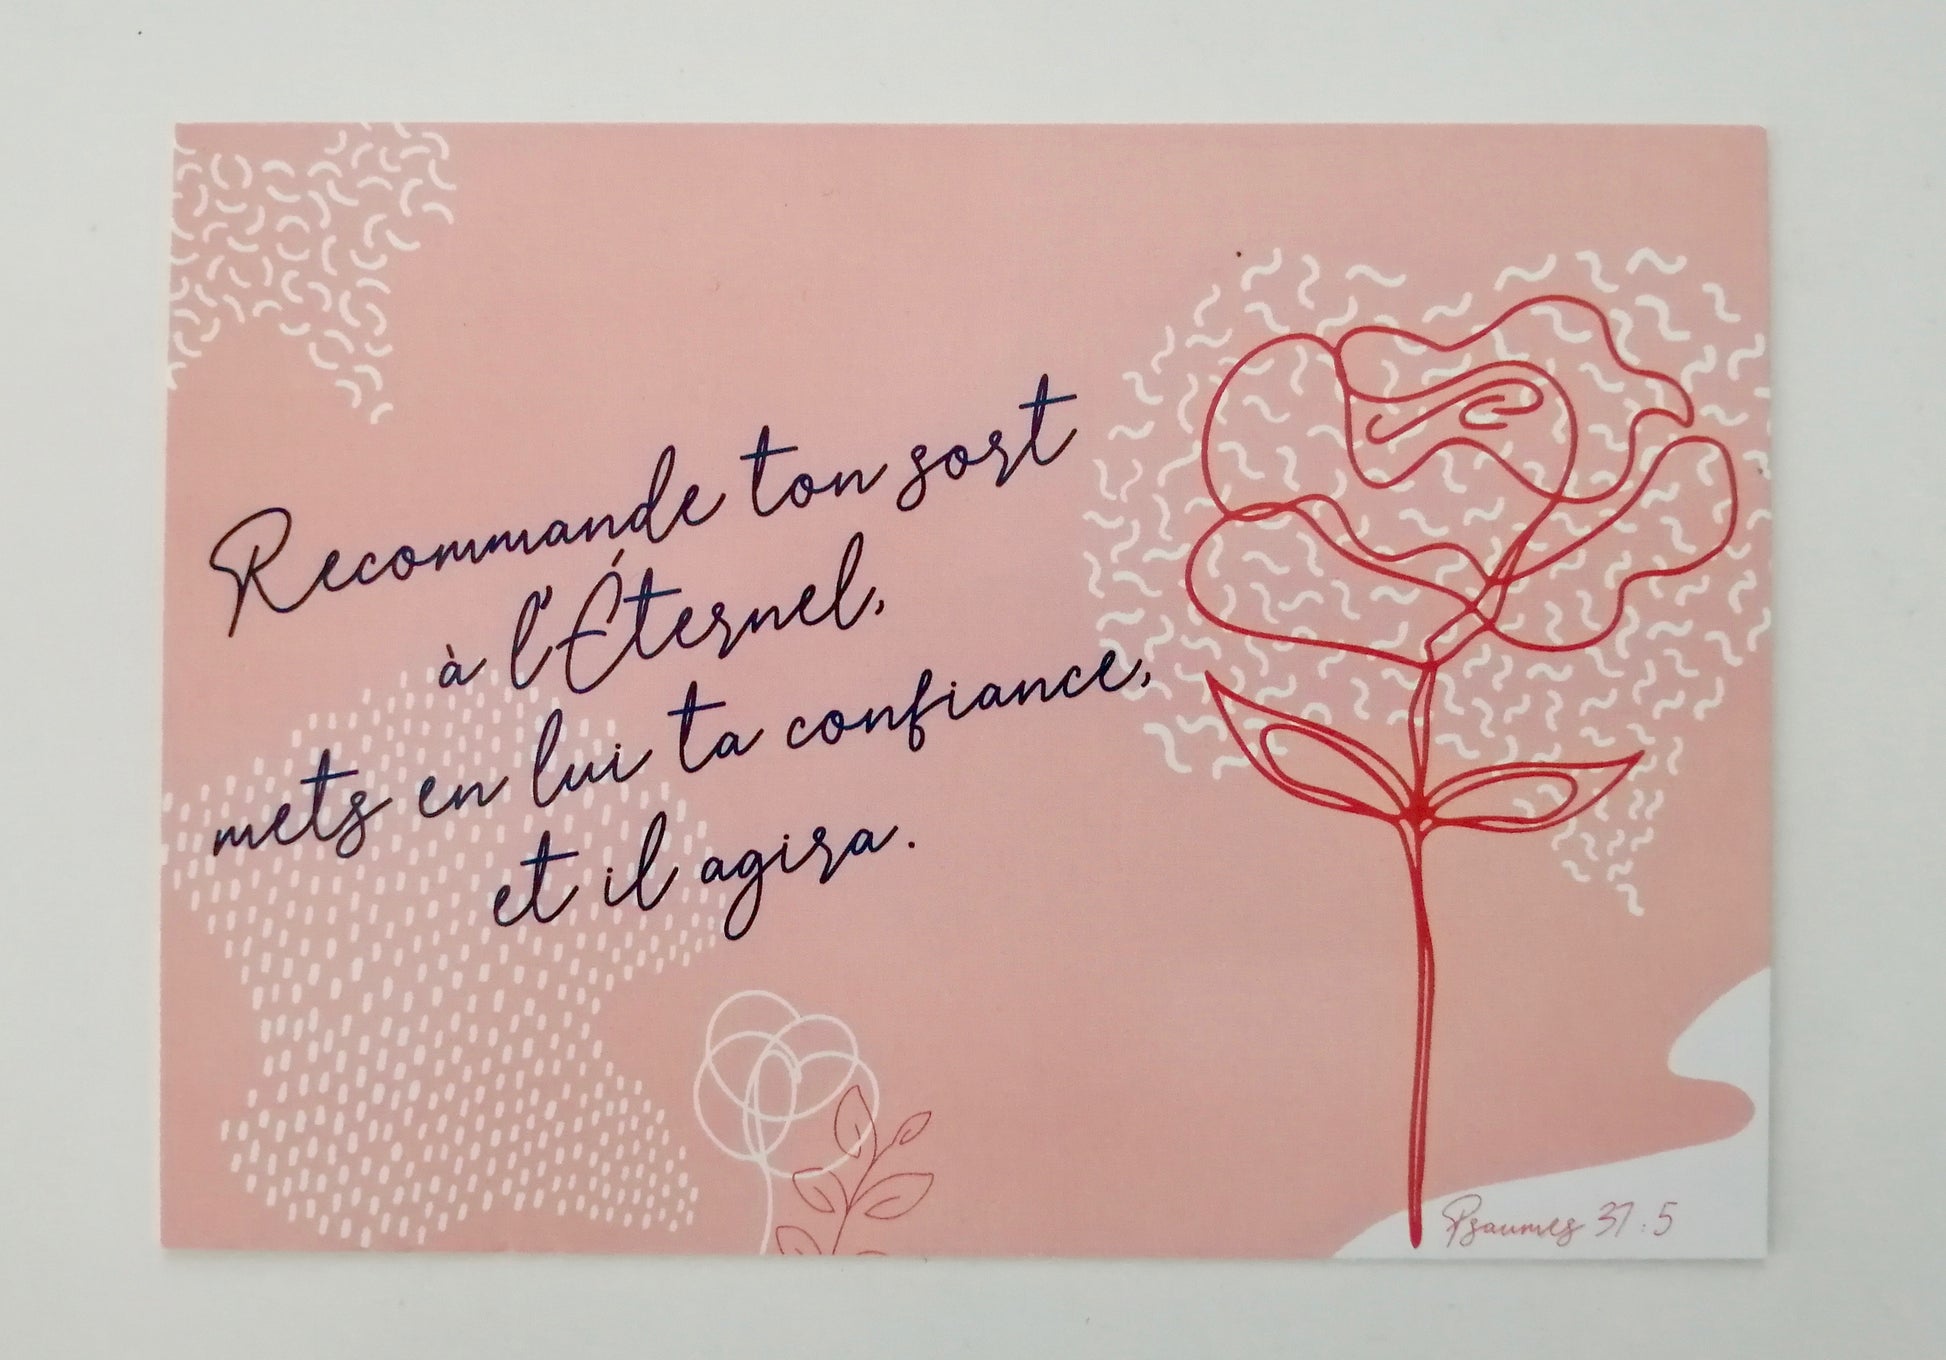 Recommande ton sort
à l'Éternel,
mets en lui ta confiance,
et il agira.
Psaumes 37:5